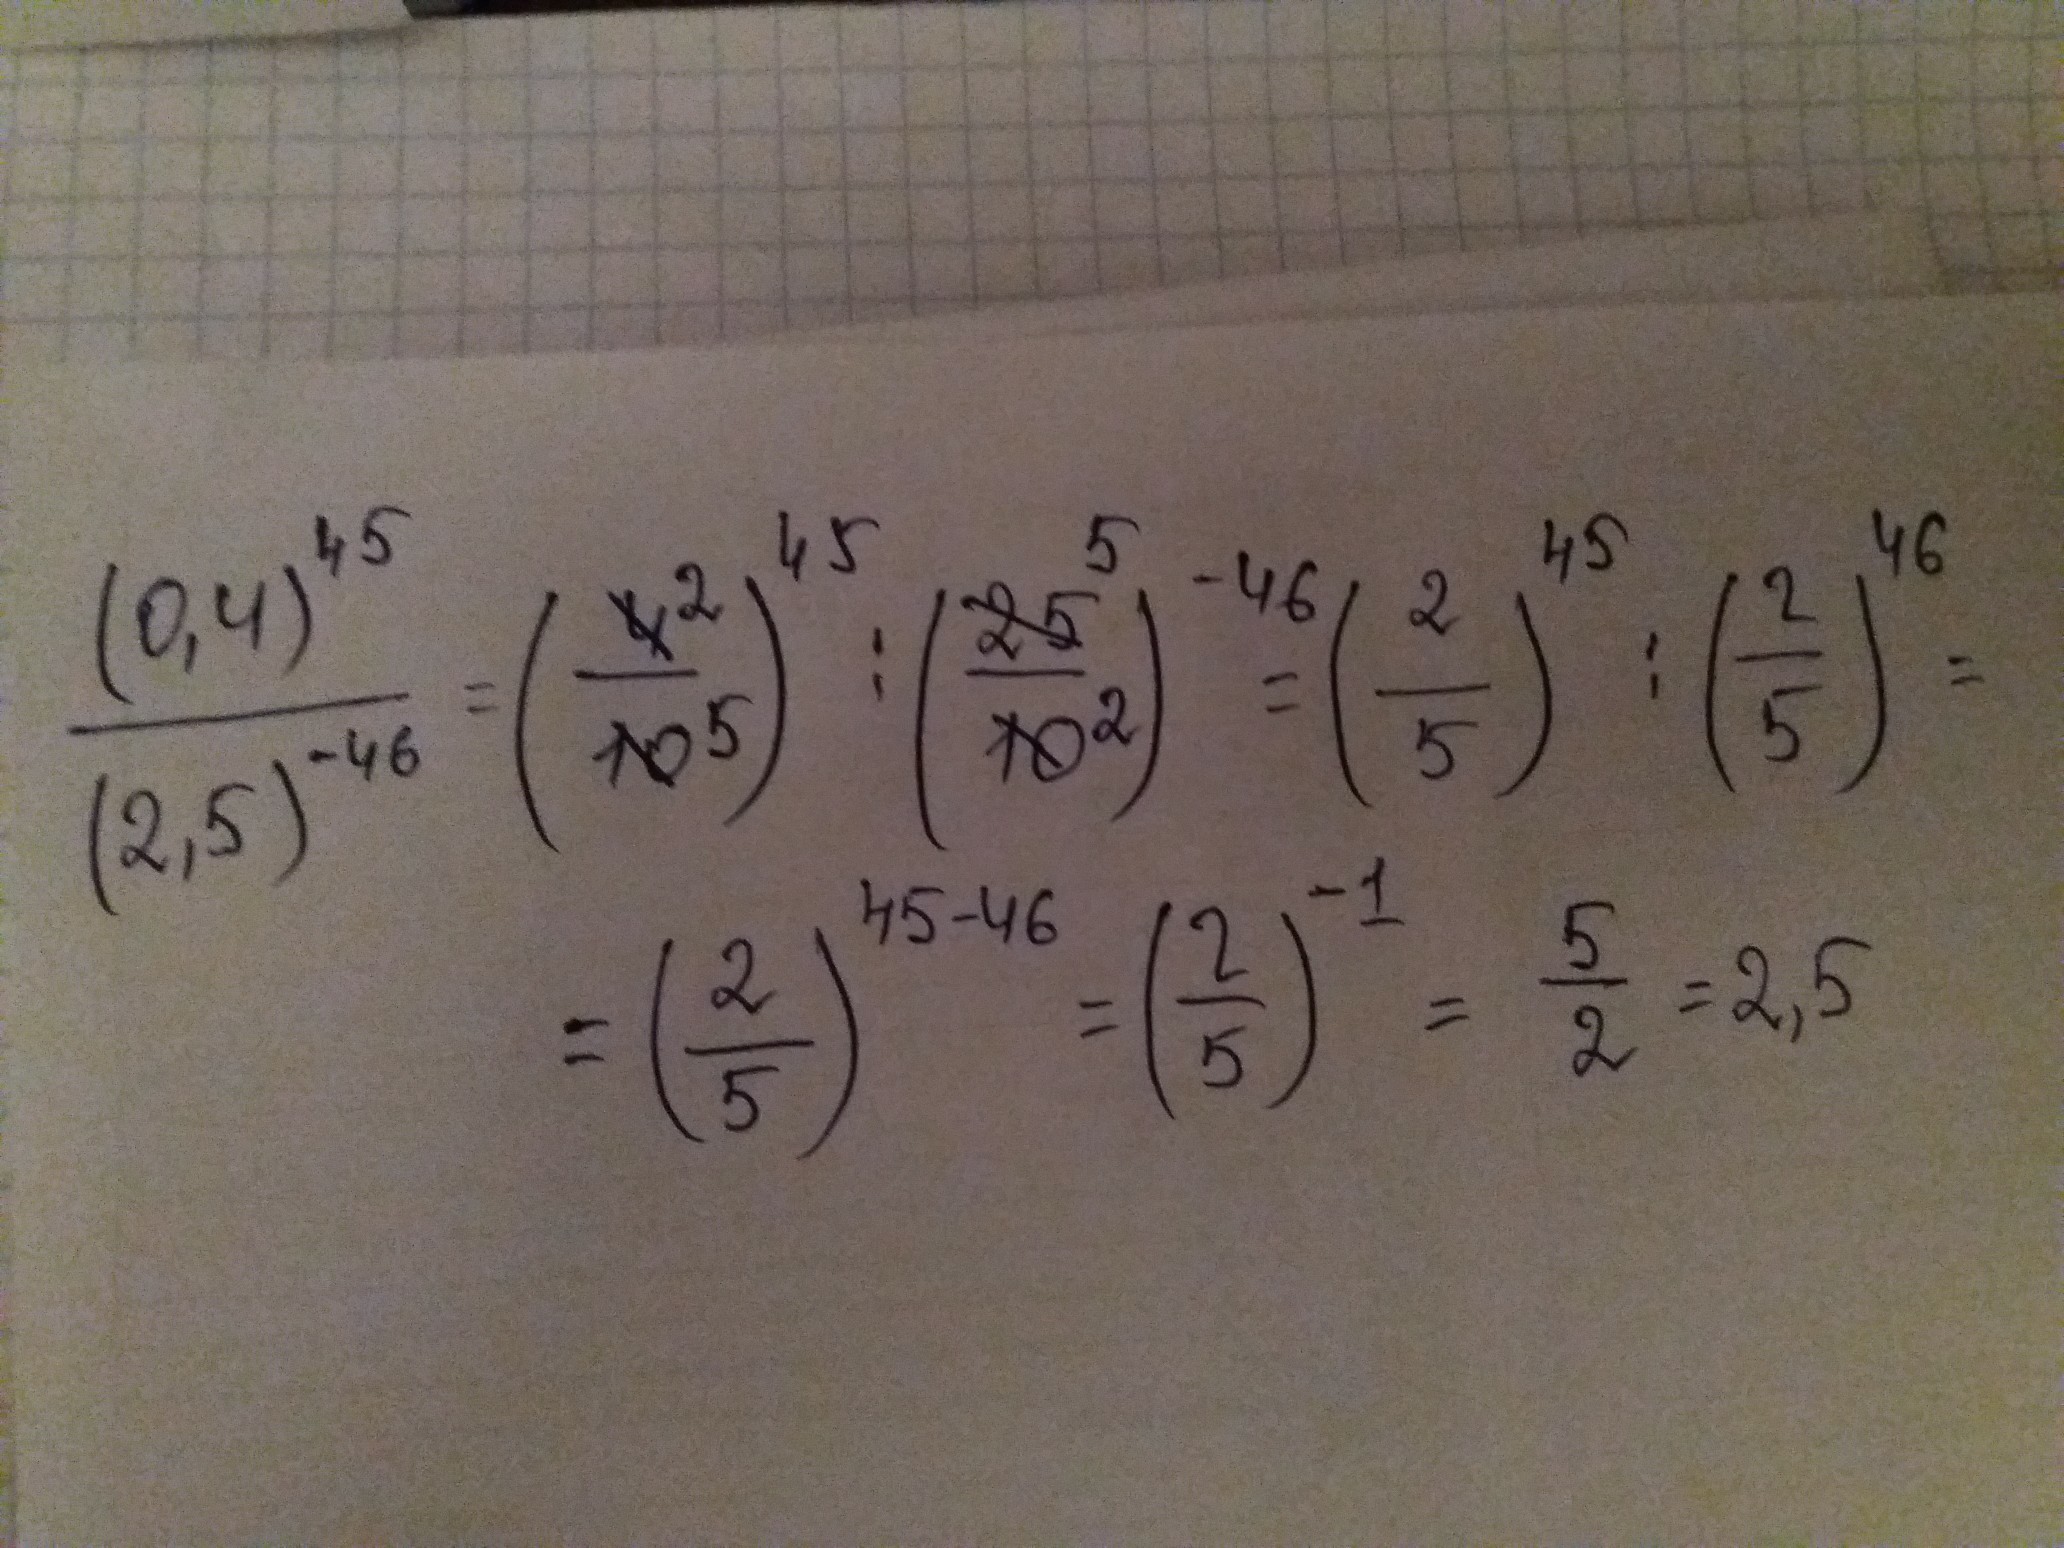 (0,4)^45 / (2,5)^-46 = (4 2 / 10 5)^45 : (25 5 / 10 2)^-46 = (2/5)^45 : (2/5)^46 =
= (2/5)^45-46 = (2/5)^-1 = 5/2 = 2,5